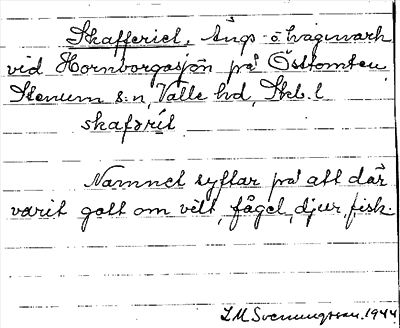 Skafferiet, Ängs- o hagmark
vid Hornborgasjön på Östtomten
Stenum s:n, Valle hd, Skb. l
skafərit
Namnet syftar på att där
varit gott om vilt, fågel, djur, fisk.
I.M. Svenungsson. 1944